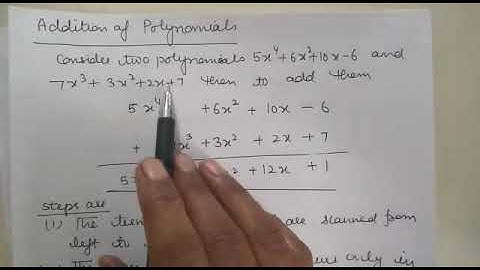 Addition of Polynomials
Consider two polynomials 5x⁴+6x²+10x-6 and
7x³+ 3x²+2x+7 then to add them
5x⁴ +6x² + 10x - 6
+ x³ +3x² + 2x + 7
5 + 12x + 1
steps are
(1) The are scanned from
left to
The only in